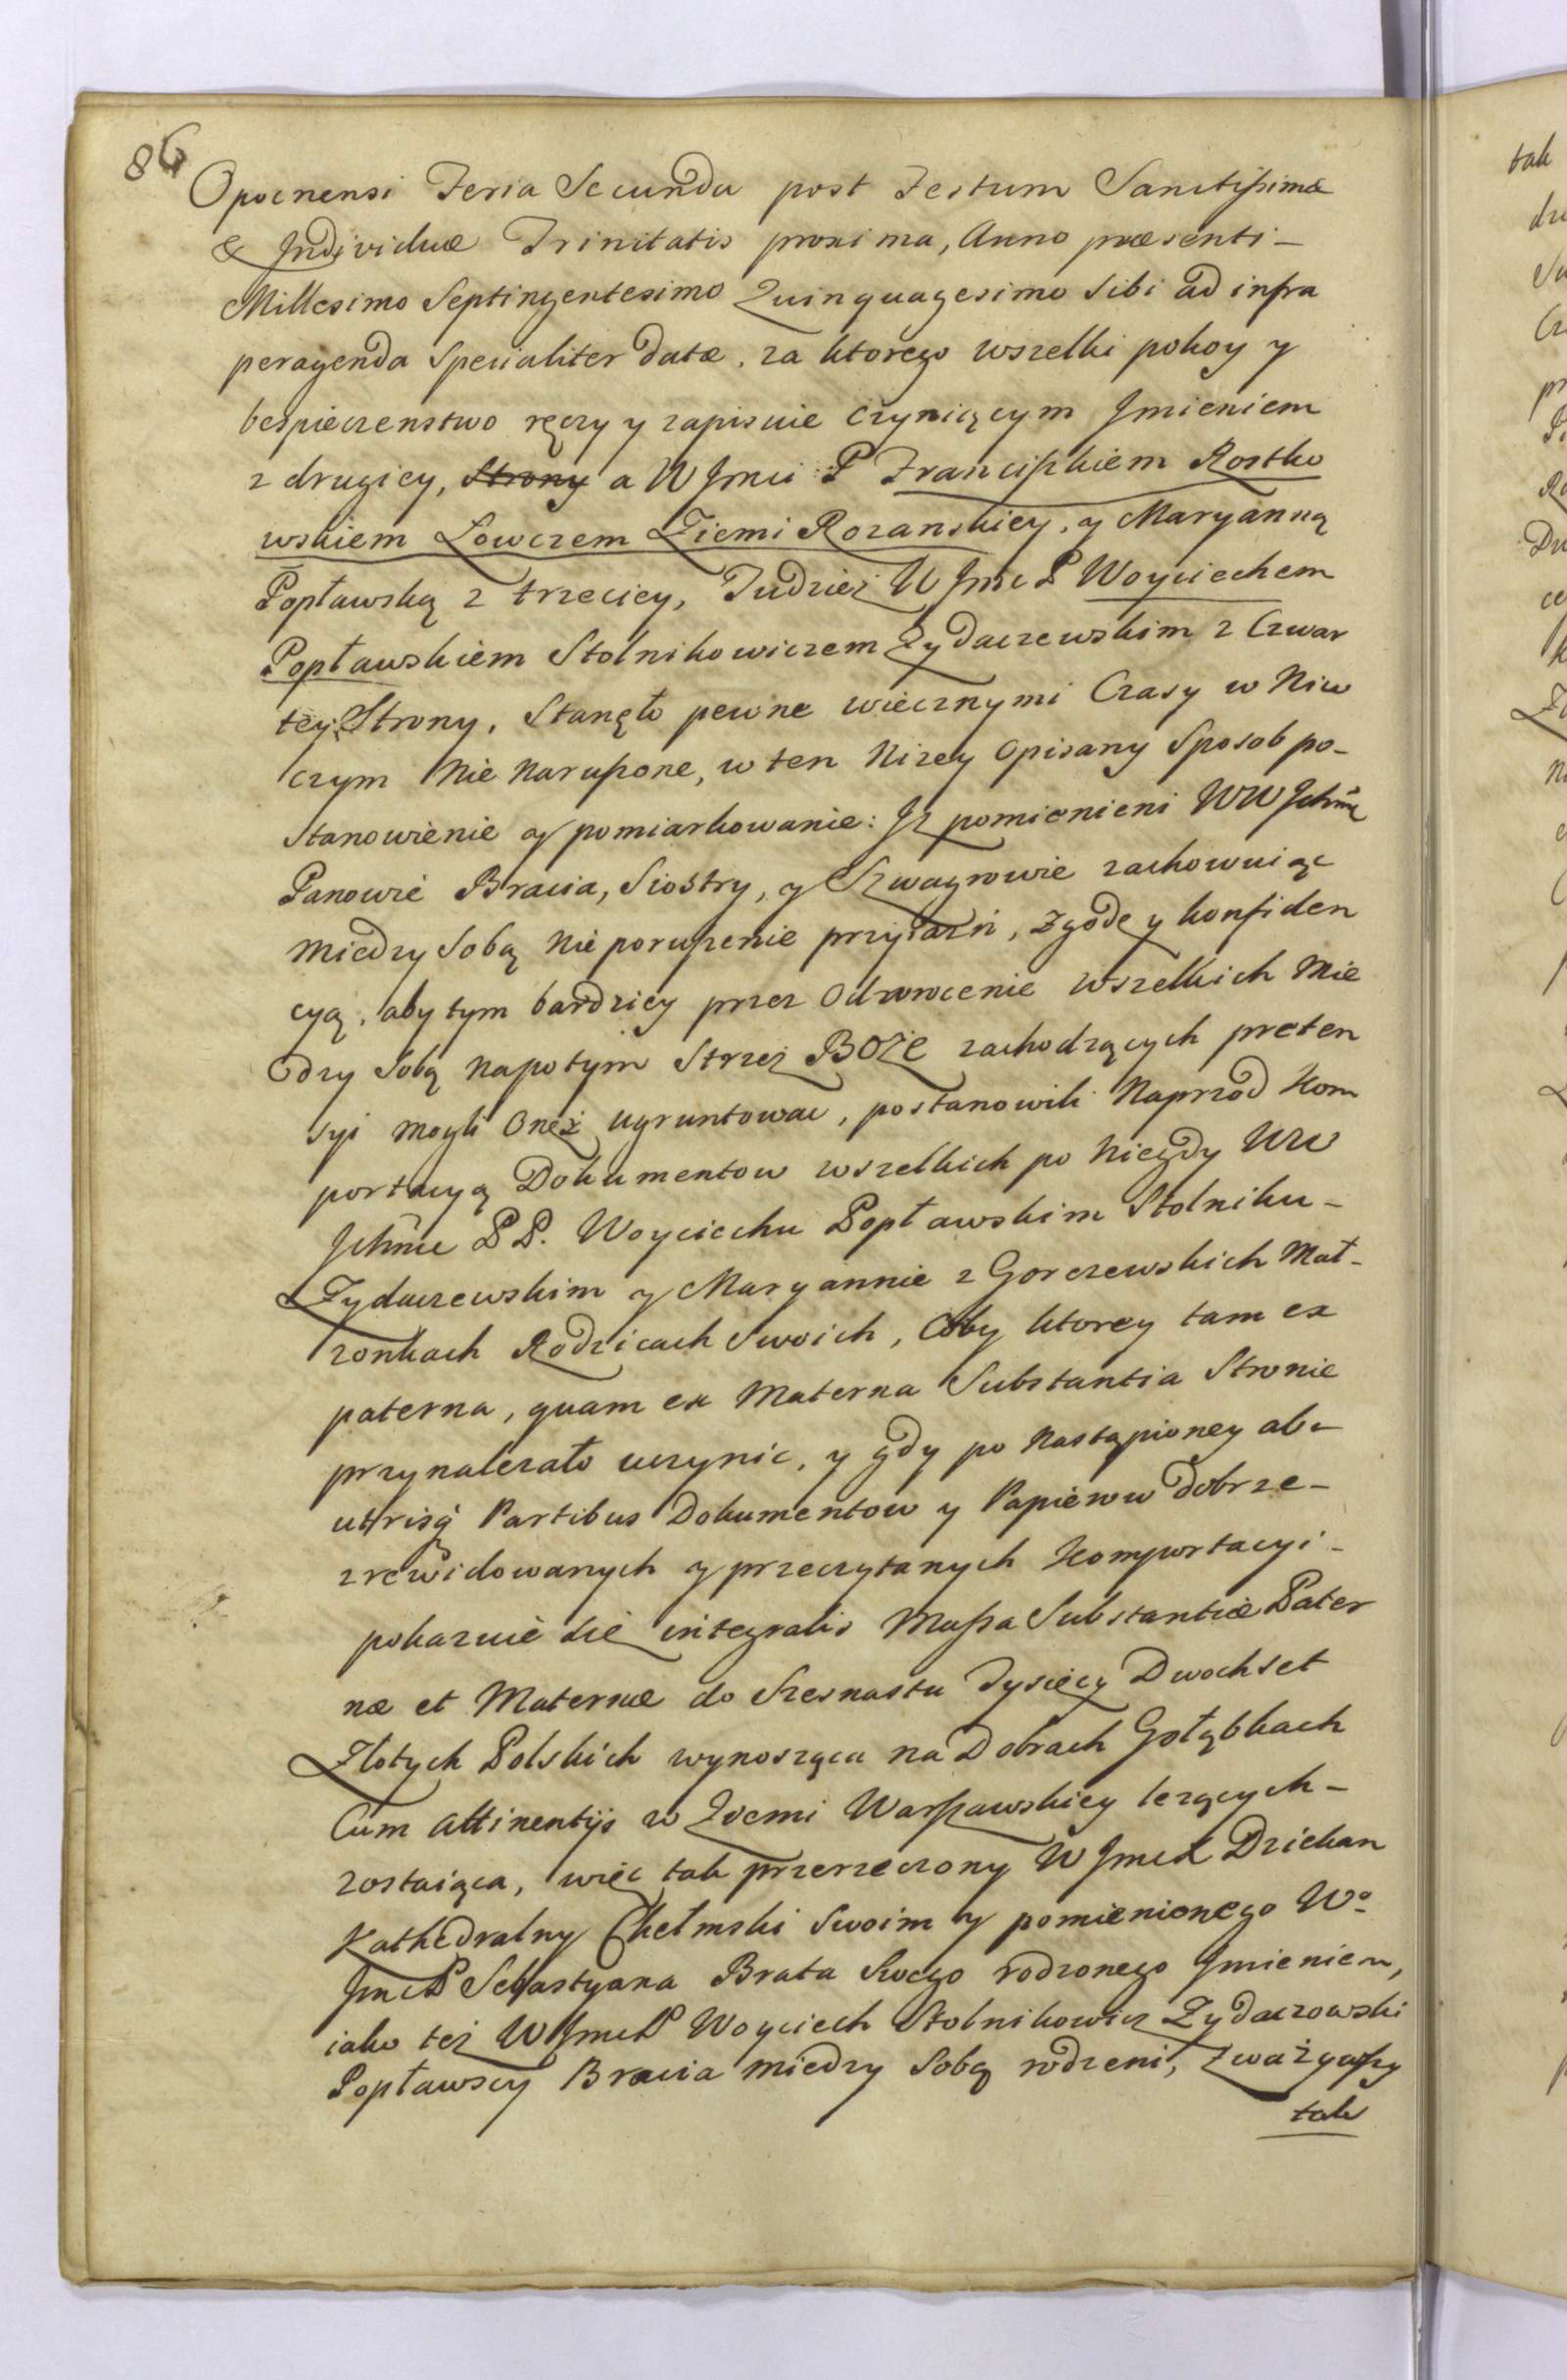 86
Opocnensi Feria Secunda post Festum Sanctißimæ
& Individuæ Trinitatis proxima, Anno præsenti–
Millesimo Septingentesimo Quinquagesimo Sibi ad infra
peragenda Specialiter datæ. za ktorego wszelki pokoy y
bespieczenstwo ręczy y zapisuie czyniącym Jmieniem
z drugiey, Strony a W Jmci P Franciszkiem Rostko
wskiem Łowczem Ziemi Rozanskiey, y Maryanną
Popławską z trzeciey, Tudziez W Jmc P Woyciechem
Popławskiem Stolnikowiczem Zydaczewskim z Czwar
tey Strony, Stanęło pewne wiecznymi Czasy w Niw
czym Nie Narußone, w ten Nizey Opisany Sposob po–
Stanowienie y pomiarkowanie: Jz pomienieni WW Jchmć
Panowie Bracia, Siostry, y Szwagrowie zachowuiąc
miedzy Sobą Nie porußenie przyiazń, Zgodę y konfiden
cyą, aby tym bardziey przez Odwrocenie wszelkich Mie
dzy Sobą Napotym Strzeż BOŻE zachodzących preten
syi mogli Onęż ugruntowac, postanowili Naprzod Kom
portacyą Dokumentow wszelkich po Niegdy WW
Jchmc PP. Woyciechu Popławskim Stolniku–
Zydaczewskim y Maryannie z Gorczewskich Mał–
zonkach Rodzicach Swoich, Coby ktorey tam ex
paterna, quam ex Materna Substantia Stronie
przynalezało uczynic, y gdy po Nastąpioney ab–
utrisq Partibus Dokumentow y Papierow dobrze–
zrewidowanych y przeczytanych Komportacyi–
pokazuie się integralis Maßa Substantiæ Pater
næ et Maternæ do Szesnastu Tysięcy Dwochset
Złotych Polskich wynosząca na Dobrach Gołąbkach
Cum attinentijs w Ziemi Warßawskiey lezących–
zostaiąca, więc tak przerzeczony W Jmc X Dziekan
Kathedralny Chełmski Swoim y pomienionego Wo
Jmc P Sebastyana Brata Swego rodzonego Jmieniem,
iako też W Jmc P Woyciech Stolnikowicz Zydaczowski
Popławscy Bracia miedzy Sobą rodzeni, Zważywßy
tak